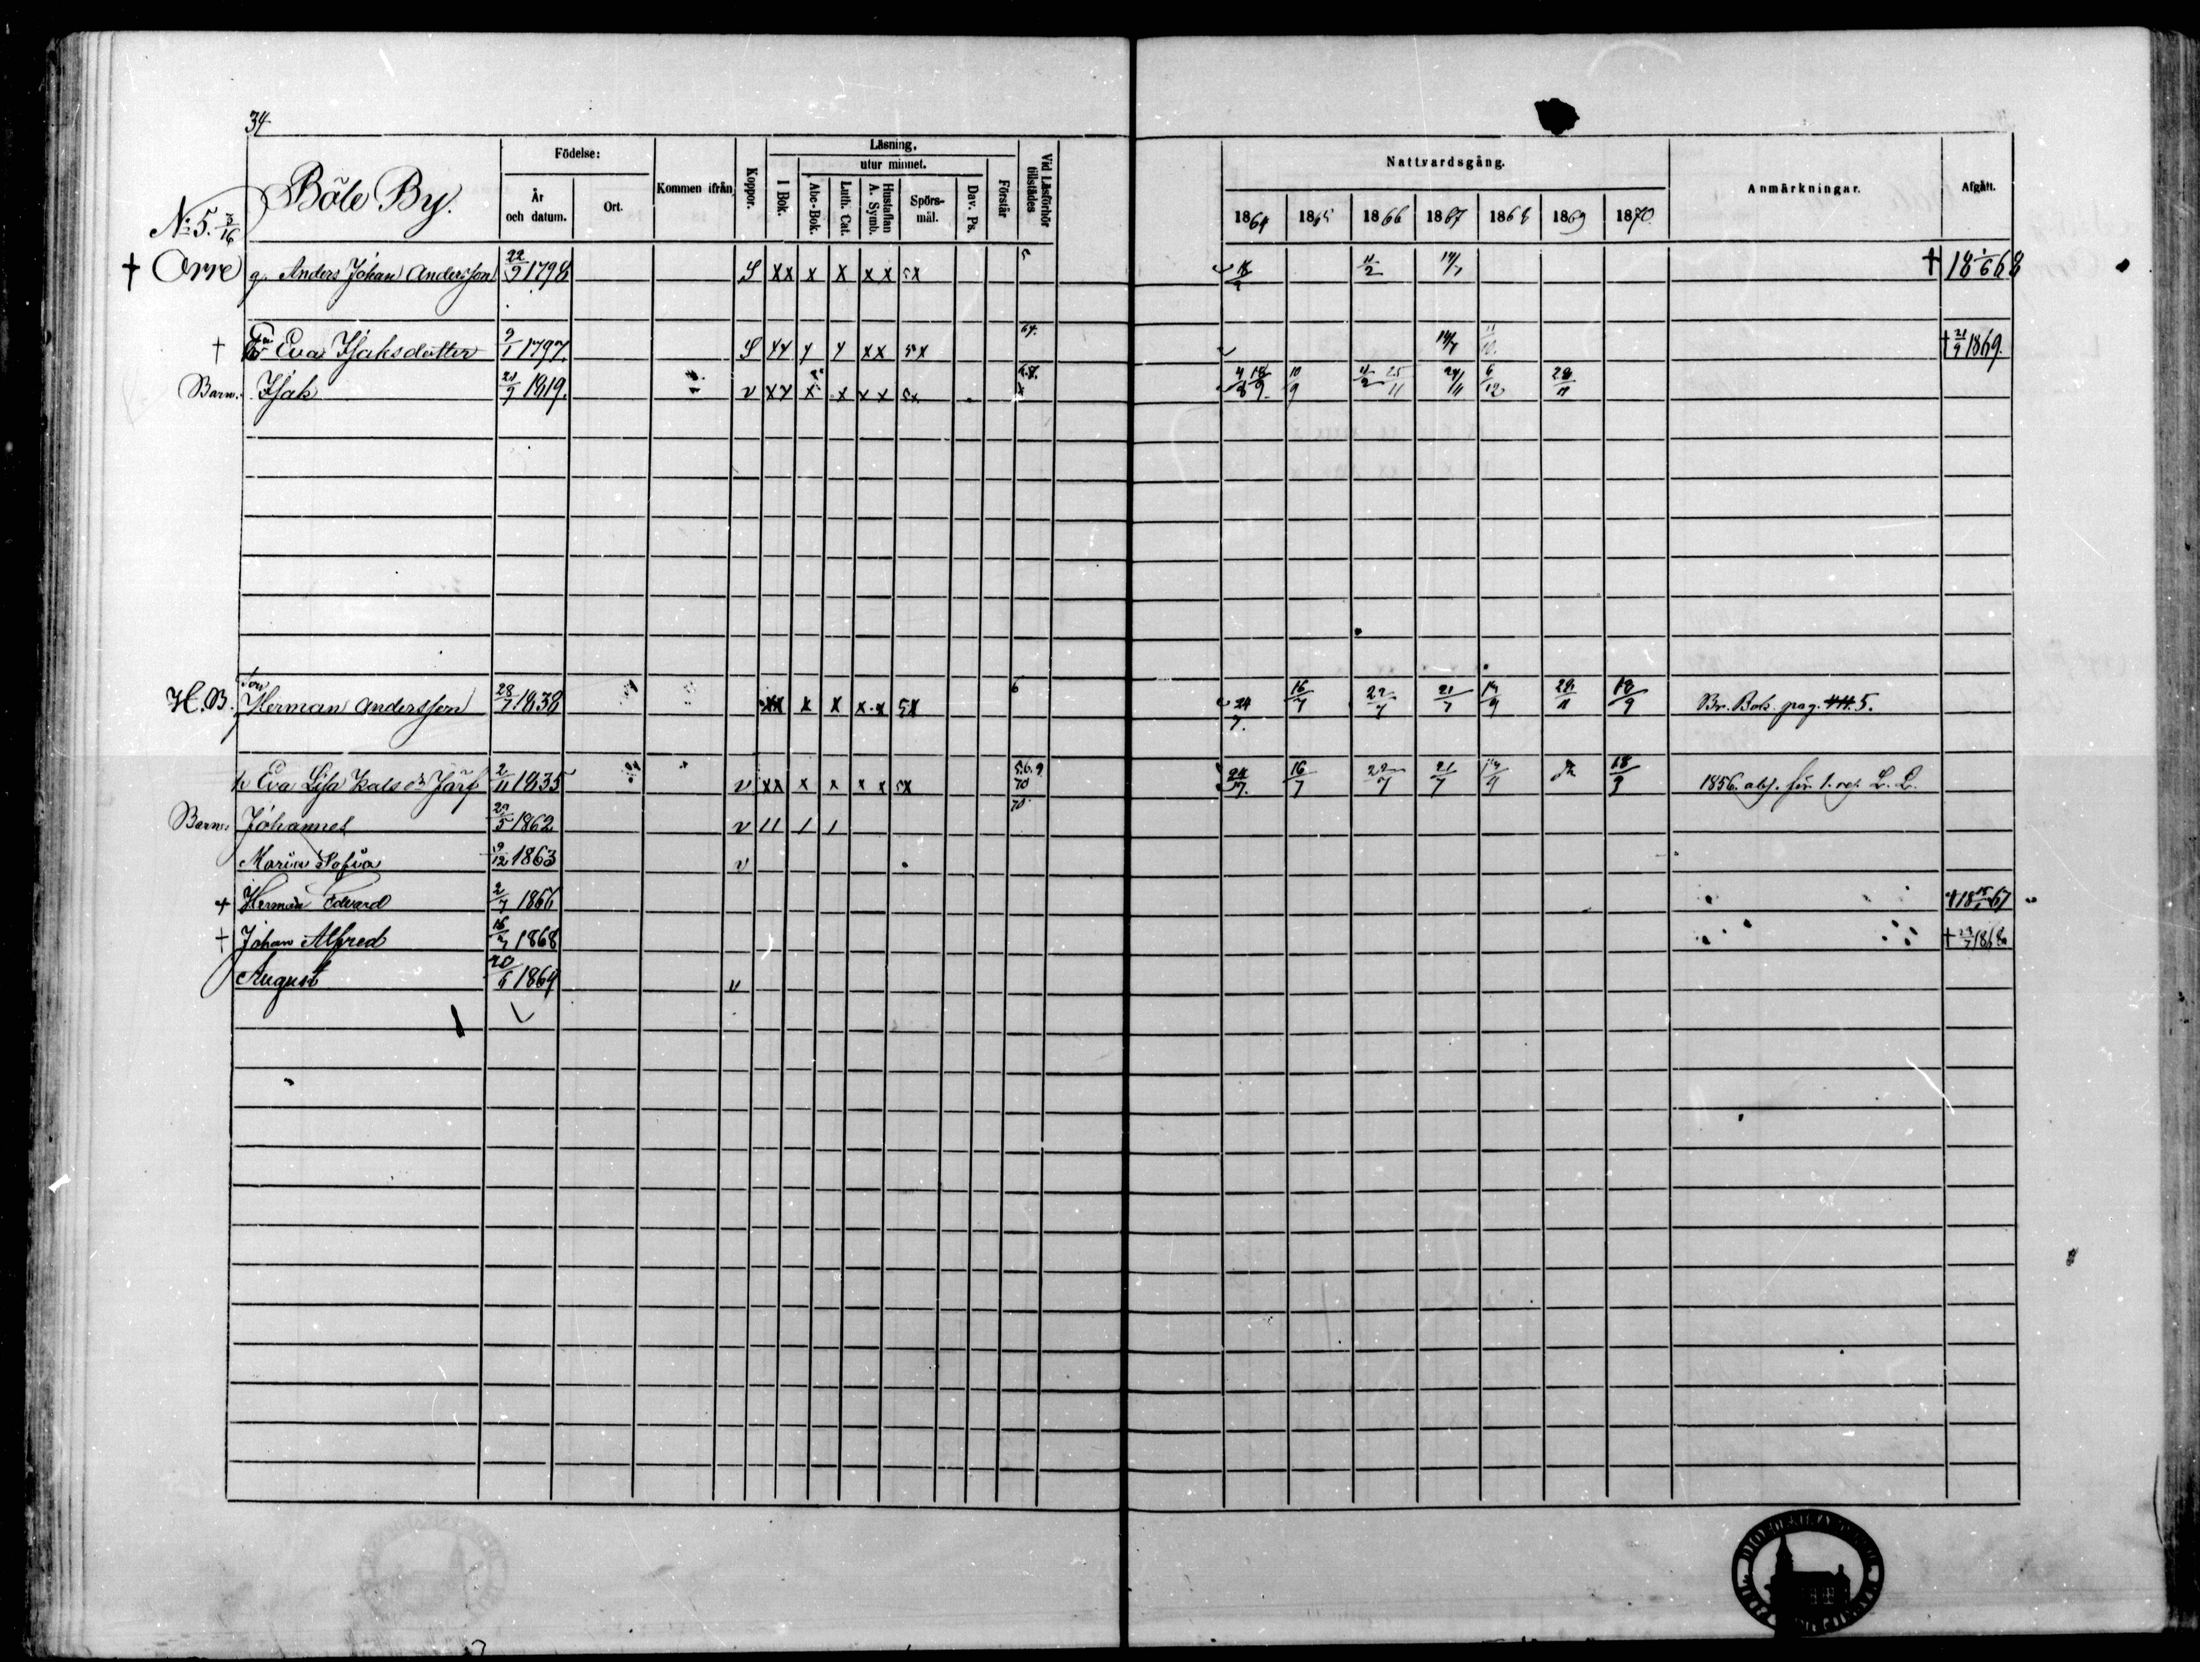 34
Böle By.
Födelse:
År och datum.
Ort.
Kommen ifrån
Koppor.
Läsning,
I Bok.
utur minnet.
Abc-Bok.
Luth. Cat.
Hustaflan A. Symb.
Spörs-mål.
Dav. Ps.
Förstår
Vid Läsförhör tillstädes
Nattvardsgång.
1864 1865 1866 1867 1868 1869 1870
Anmärkningar.
Afgått.
No 5. 3/16
† Orre g. Anders Johan Andersson 22/9 1798 S xx x x x x 5x 5 11/2 14/7 † 18 1/6 68
† Eva Isaksdotter 2/1 1797 S xx x x xx 5x 64. 14/7 † 21/9 1869.
Barn. Isak 21/9 1819. v xx x x x x 5x 10/9 11/2 25/11 24/11 6/12 28/11
H.B. Son Herman Andersson 28/7 1838 xx x x x x 5x 6 24/7. 16/7 22/7 21/7 19/9 28/11 18/9 Br. Bok. pag. 5.
h Eva Lisa Järf 2/11 1835 v xx x x x x 5x 5.6.9 70 24/7. 16/7 22/7 21/7 19/9 18/9 1856. L. L.
Barn. Johannes 22/5 1862 v 11 1 1 70
Maria Sofia 9/12 1863 v
† Herman Edvard 2/7 1866 † 18 15/1 67
† Johan Alfred 16/7 1868 † 23/7 1868
August 20/6 1864 v